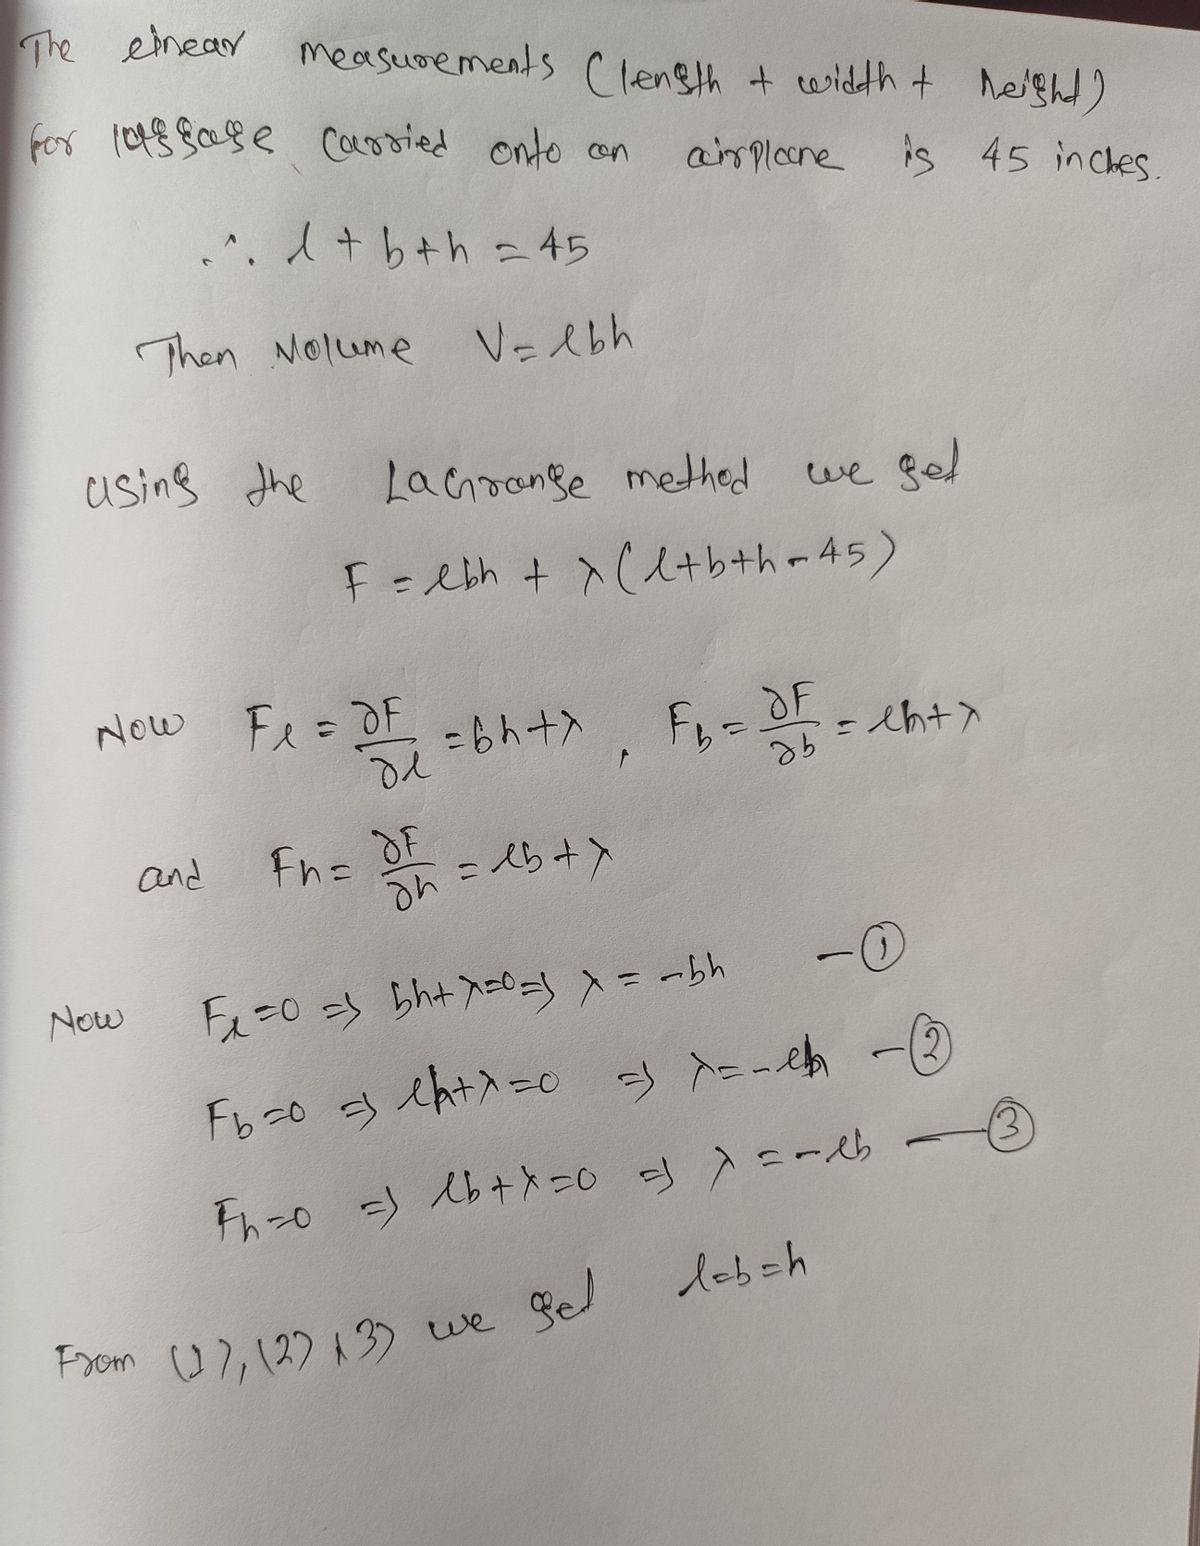 The linear measurements (length + width + height)
for luggage carried onto an airplane is 45 inches.
∴ l + b + h = 45
Then Volume V = lbh
using the LaGrange method we get
F = lbh + λ(l+b+h-45)
Now Fl = ∂F/∂l = bh+λ , Fb = ∂F/∂b = lh+λ
and Fh = ∂F/∂h = lb+λ
Now Fl=0 => bh+λ=0 => λ = -bh - ①
Fb=0 => lh+λ=0 => λ=-lh - ②
Fh=0 => lb+λ=0 => λ=-lb - ③
From (1), (2), (3) we get l=b=h